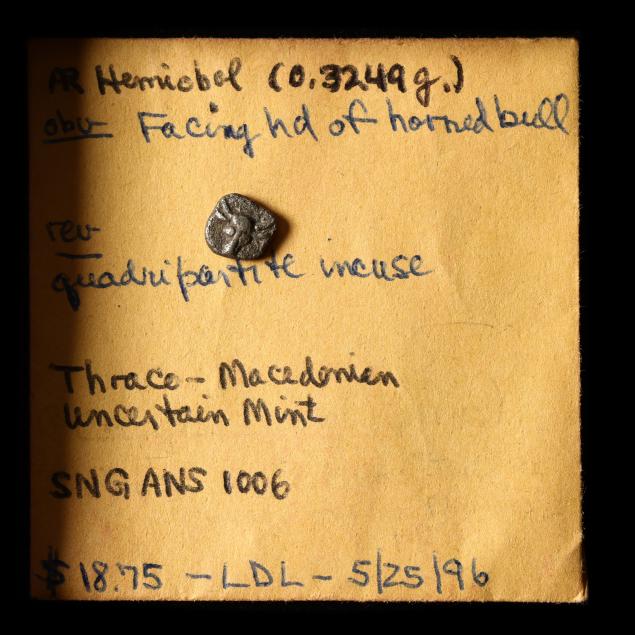 AR Hemiobol (0.3249g.)
obv Facing hd of horned bull
rev
quadripartite incuse
Thraco-Macedonian
Uncertain Mint
SNG ANS 1006
$18.75 - LDL - 5/25/96